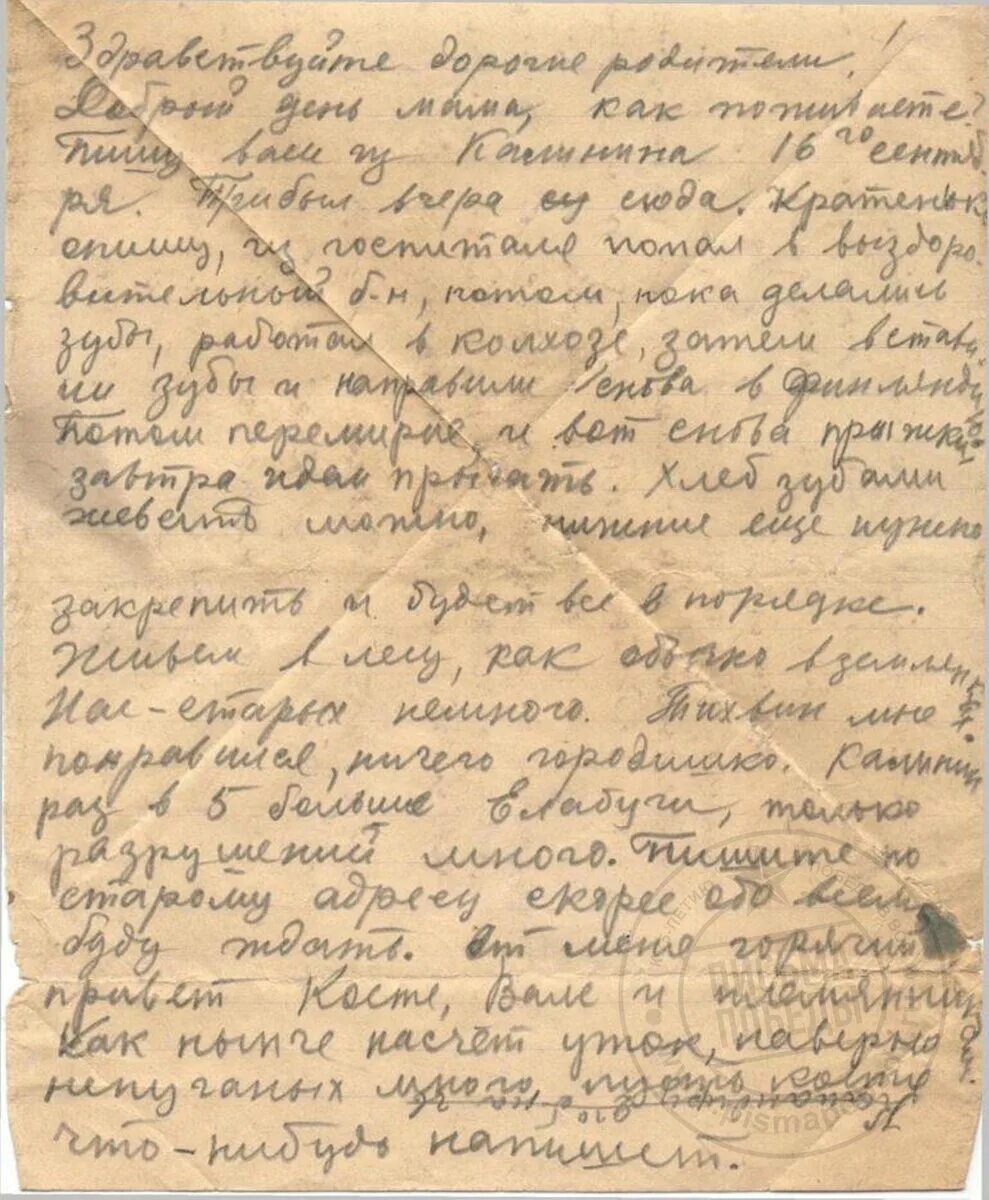 Здравствуйте дорогие родители!
Добрый день мама, как поживаете?
Пишу вам из Калинина 16го сентяб
ря. Прибыл вчера сюда. Кратеньк
опишу, из госпиталя попал в выздоро-
вительный б-н, потом, пока делались
зубы, работал в колхозе, затем встави
ли зубы и направили снова в Финлянди
Потом перемирие и вот снова прыжки
завтра идем прыгать. Хлеб зубами
жевать можно, нижние еще нужно
закрепить и будет все в порядке.
Живем в лесу, как обычно в землянках.
Нас-старых немного. Тихвин мне
понравился, ничего городишко. Калинин
раз в 5 больше Елабуги, только
разрушений много. Пишите по
старому адресу скорее обо всем
буду ждать. От меня горячий
привет Косте, Вале и племянникам.
Как нынче насчёт уток, наверно
непуганых много, пусть Костя
что-нибудь напишет.
ПИСЬМА
ПОБЕДЫ